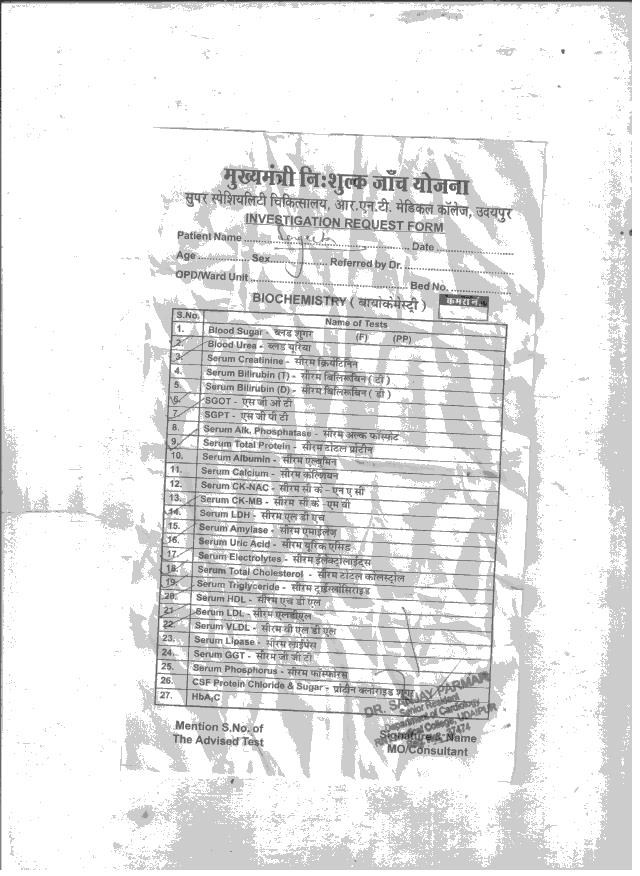 मुख्यमंत्री नि:शुल्क जाँच योजना
सुपर स्पेशियलिटी चिकित्सालय, आर.एन.टी. मेडिकल कॉलेज, उदयपुर
INVESTIGATION REQUEST FORM
Patient Name ........ Date ........
Age ........ Sex ........ Referred by Dr. ........
OPD/Ward Unit ........ Bed No. ........
BIOCHEMISTRY ( बायोकेमेस्ट्री )
S.No. Name of Tests
1. Blood Sugar - ब्लड शुगर (F) (PP)
2. Blood Urea - ब्लड यूरिया
3. Serum Creatinine - सीरम क्रियेटिनिन
4. Serum Bilirubin (T) - सीरम बिलिरूबिन ( टी )
5. Serum Bilirubin (D) - सीरम बिलिरूबिन ( डी )
6. SGOT - एस जी ओ टी
7. SGPT - एस जी पी टी
8. Serum Alk. Phosphatase - सीरम अल्क फॉस्फेट
9. Serum Total Protein - सीरम टोटल प्रोटीन
10. Serum Albumin - सीरम एल्बुमिन
11. Serum Calcium - सीरम केल्शियम
12. Serum CK-NAC - सीरम सी के - एन ए सी
13. Serum CK-MB - सीरम सी के -एम बी
14. Serum LDH - सीरम एल डी एच
15. Serum Amylase - सीरम एमाईलेज
16. Serum Uric Acid - सीरम यूरिक एसिड
17. Serum Electrolytes - सीरम ईलेक्ट्रोलाईट्स
18. Serum Total Cholesterol - सीरम टोटल कोलस्ट्रोल
19. Serum Triglyceride - सीरम ट्राईग्लिसिराइड
20. Serum HDL - सीरम एच डी एल
21 Serum LDL - सीरम एलडीएल
22. Serum VLDL - सीरम वी एल डी एल
23. Serum Lipase - सीरम लाईपेस
24. Serum GGT - सीरम जी जी टी
25. Serum Phosphorus - सीरम फॉस्फोरस
26. CSF Protein Chloride & Sugar - प्रोटीन क्लोराइड शुगर
27. HbA1C
DR. SANJAY PARMAR
Senior Resident
Department of Cardiology
College, UDAIPUR
37474
Mention S.No. of
The Advised Test
Signature & Name
MO/Consultant